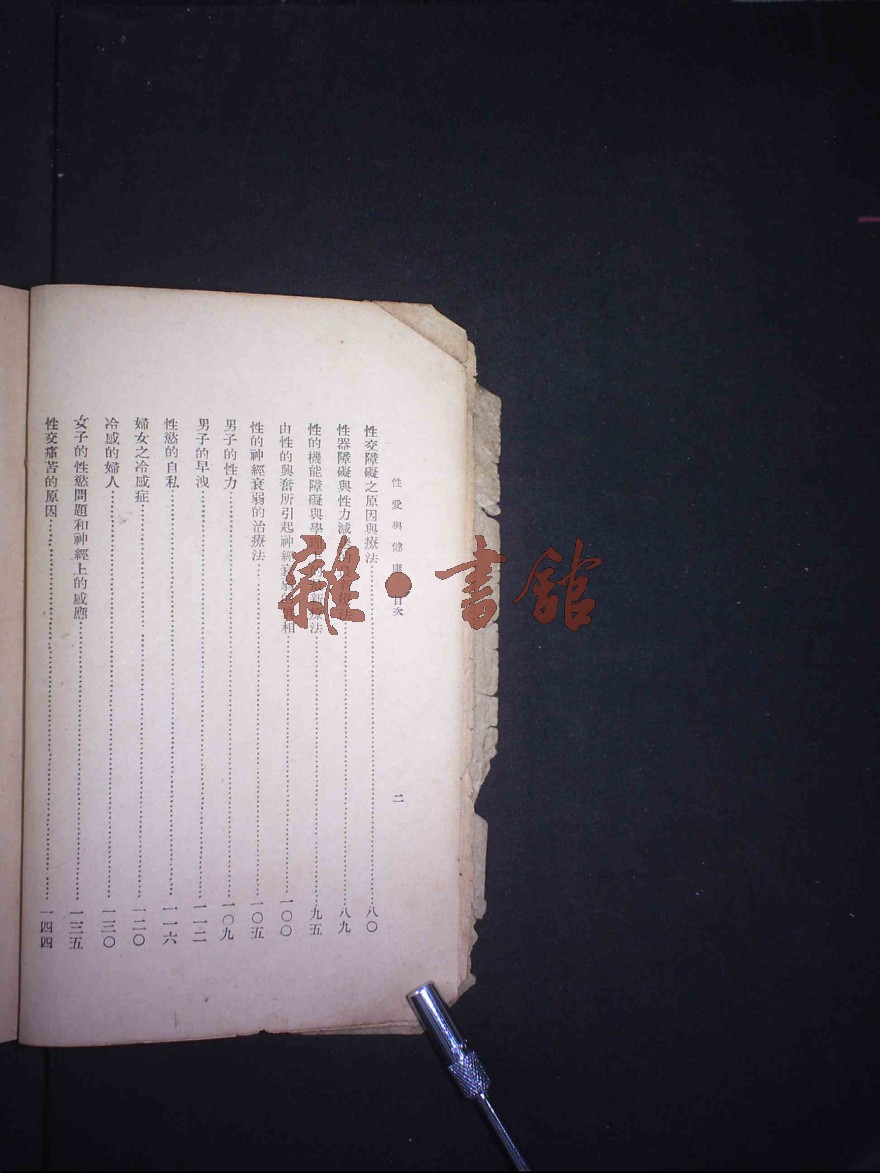 性愛與健康 目次
二
性交障礙之原因與療法……八〇
性器障礙與性力減……八九
性的機能障礙與學理……療法……九五
由性的興奮所引起神經衰弱……相……一〇〇
性的神經衰弱的治療法……一〇五
男子的性力……一〇九
男子的早洩……一一二
性慾的自私……一一六
婦女之冷感症……一二〇
冷感的婦人……一三〇
女子的性慾問題和神經上的感應……一三五
性交痛苦的原因……一四四
雜·書館